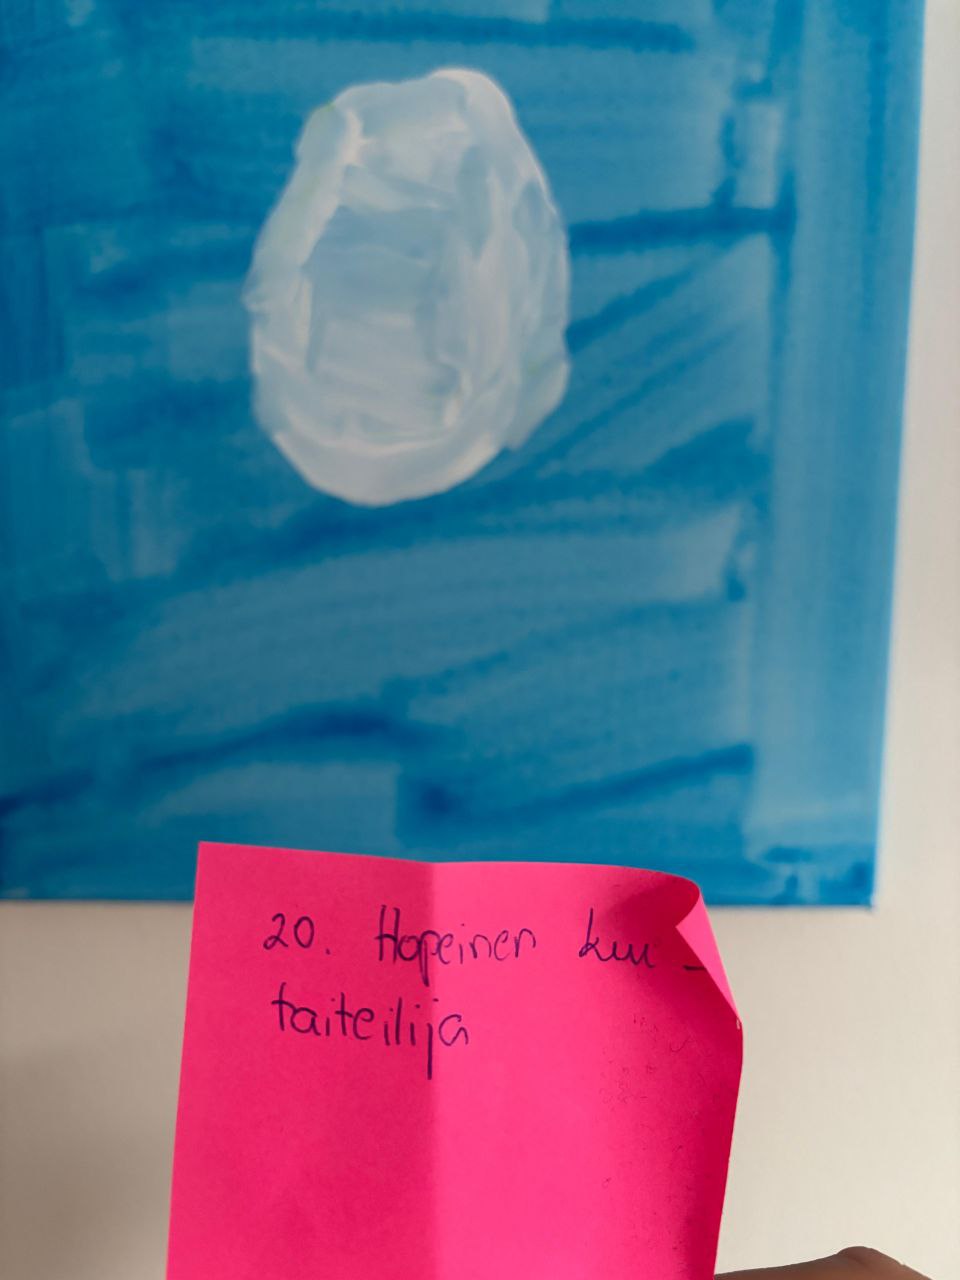 20. Hopeinen kuu -
taiteilija